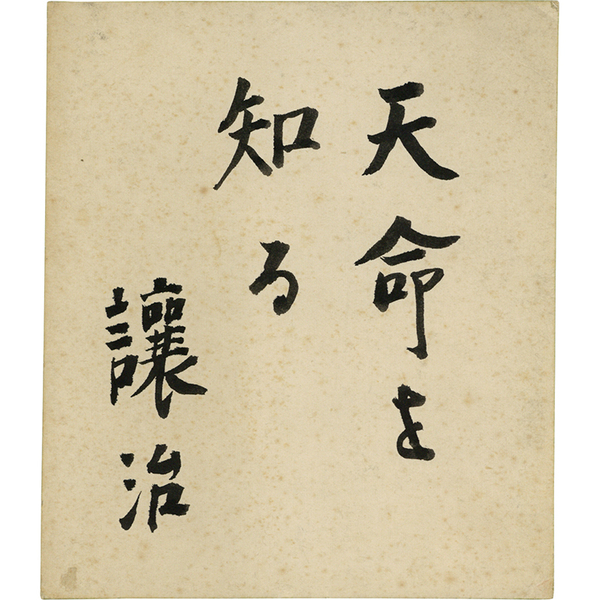 天命を
知る
讓治